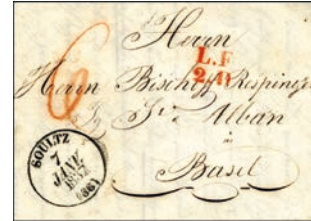 Herrn
L.F
Herrn Bischoff Respinger
St. Alban
in
Basel
6
SOULTZ
7
JANV.
(66)